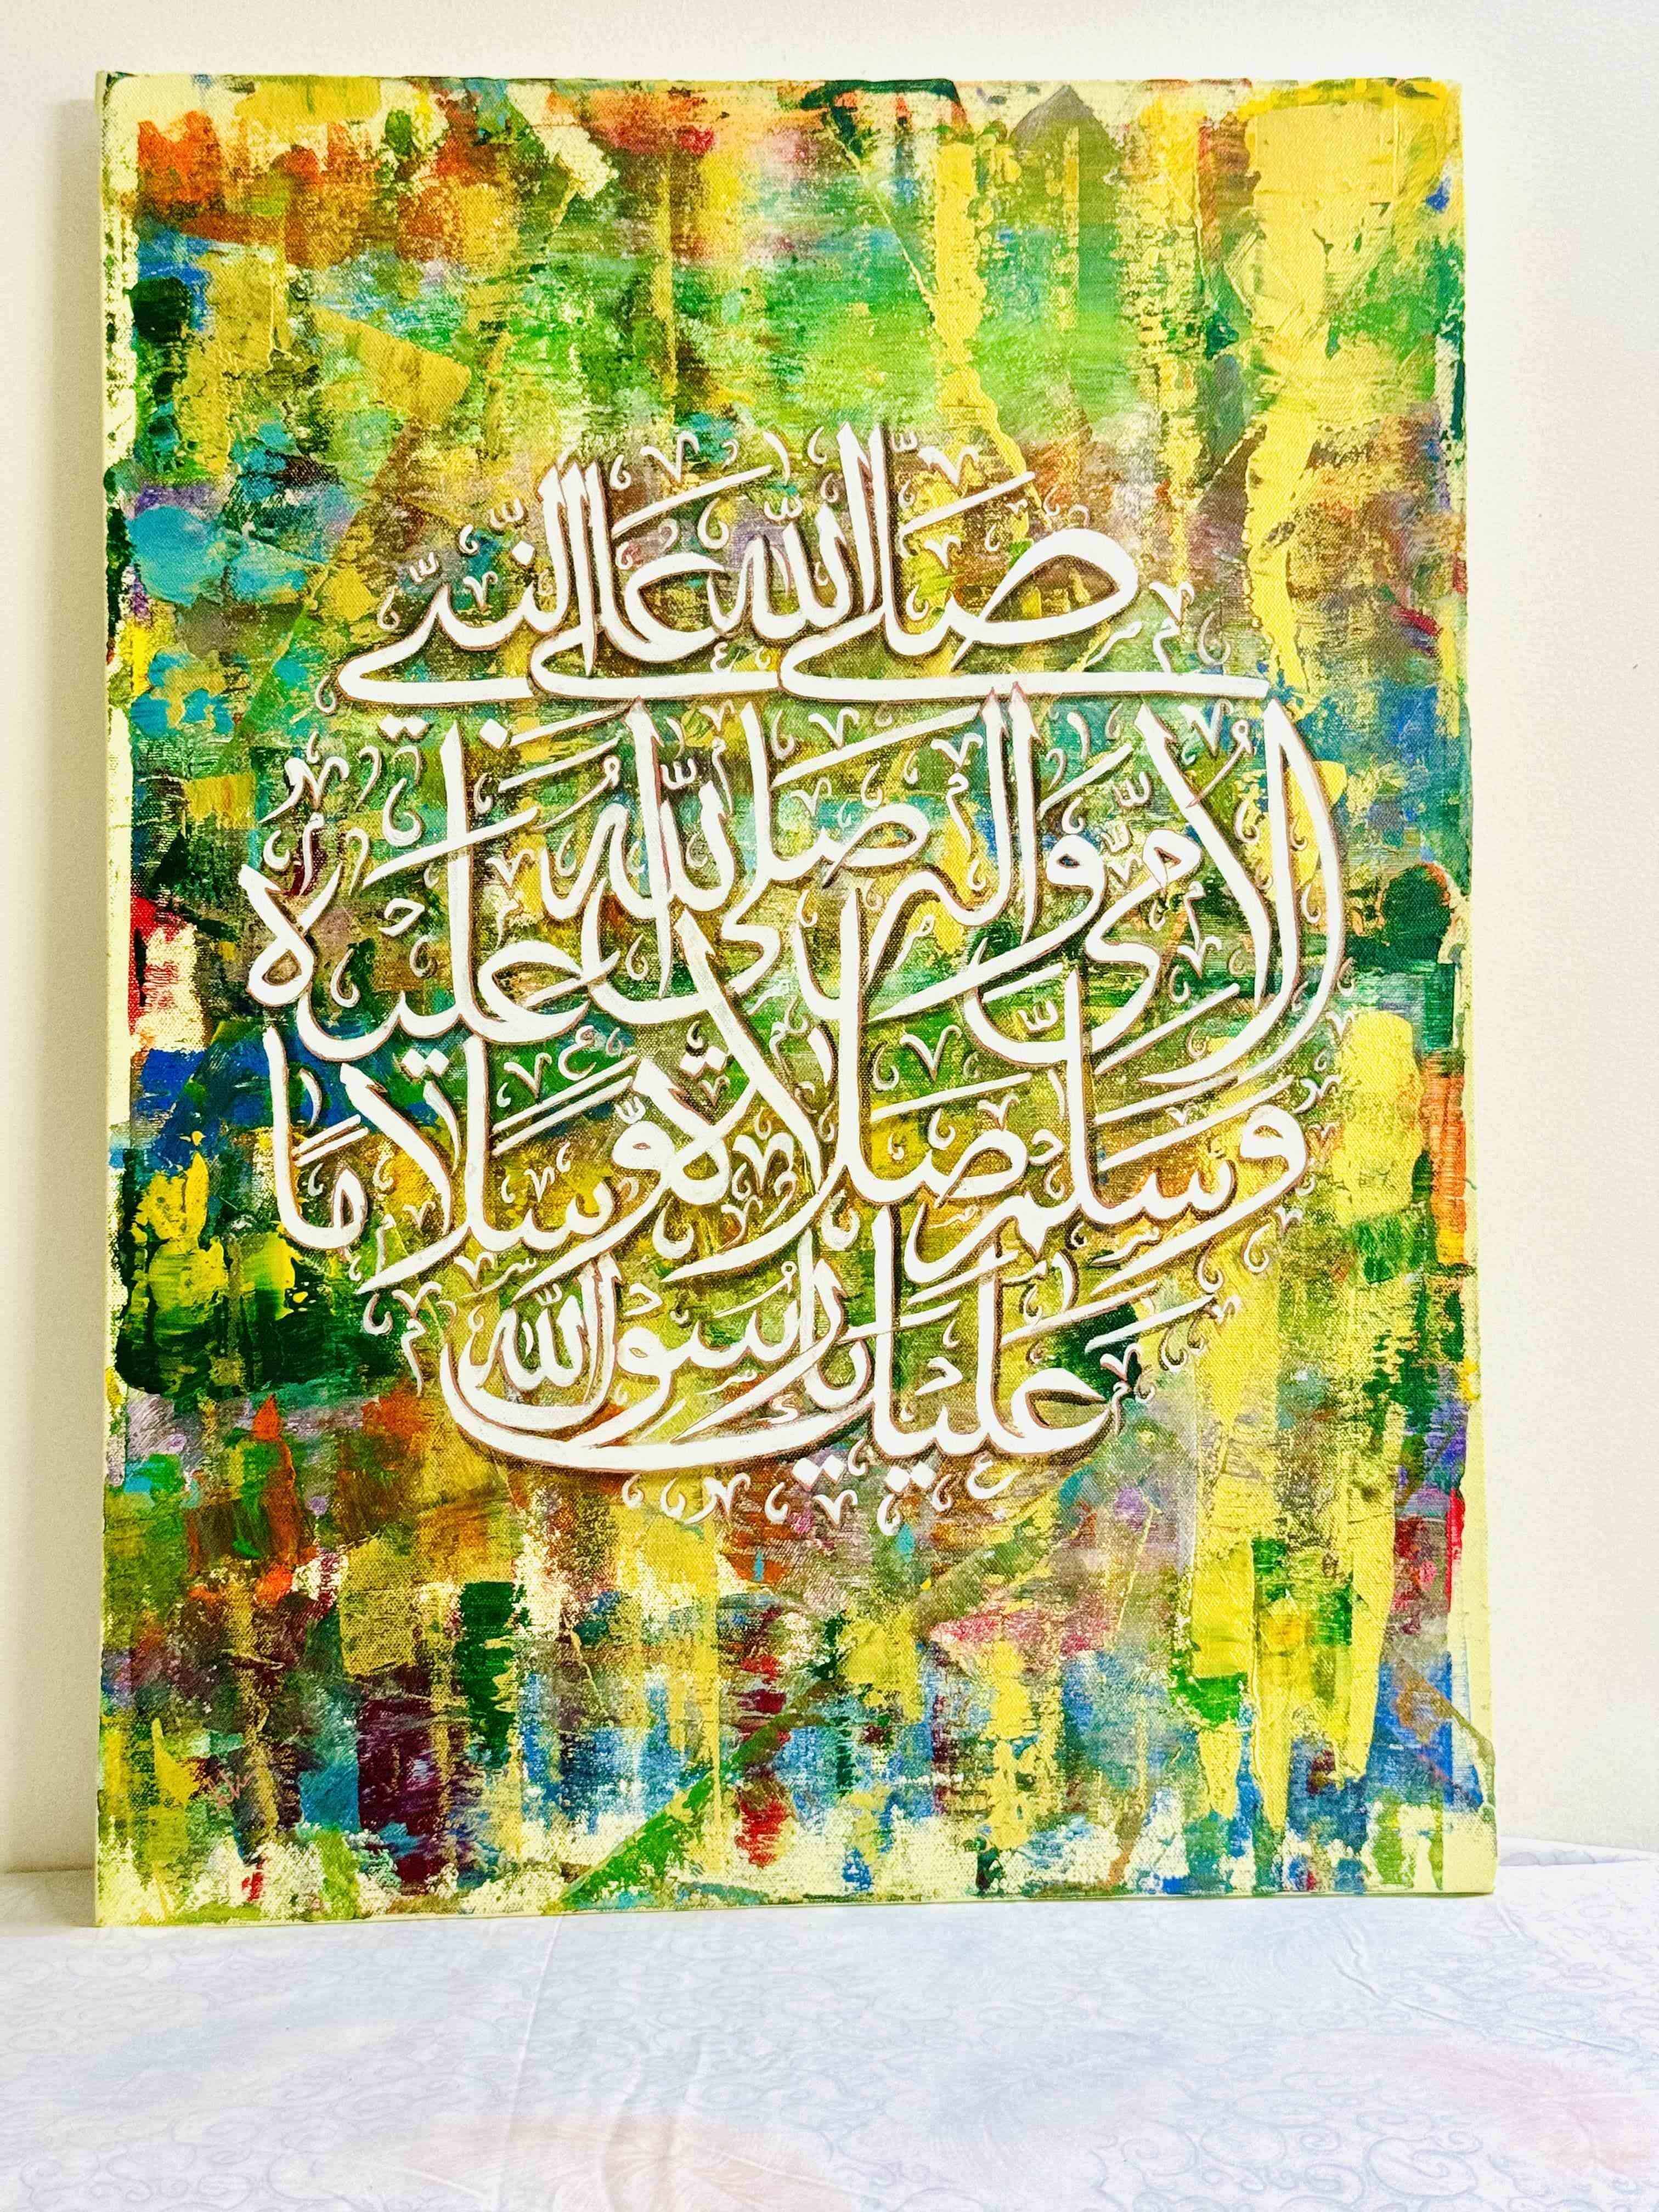 صَلَّى اللّٰهُ عَلَى النَّبِيِّ
الْأُمِّيِّ وَاٰلِهٖ صَلَّى اللّٰهُ عَلَيْهِ
وَسَلَّمَ صَلَاةً وَّسَلَامًا
عَلَيْكَ يَا رَسُوْلَ اللّٰهِ